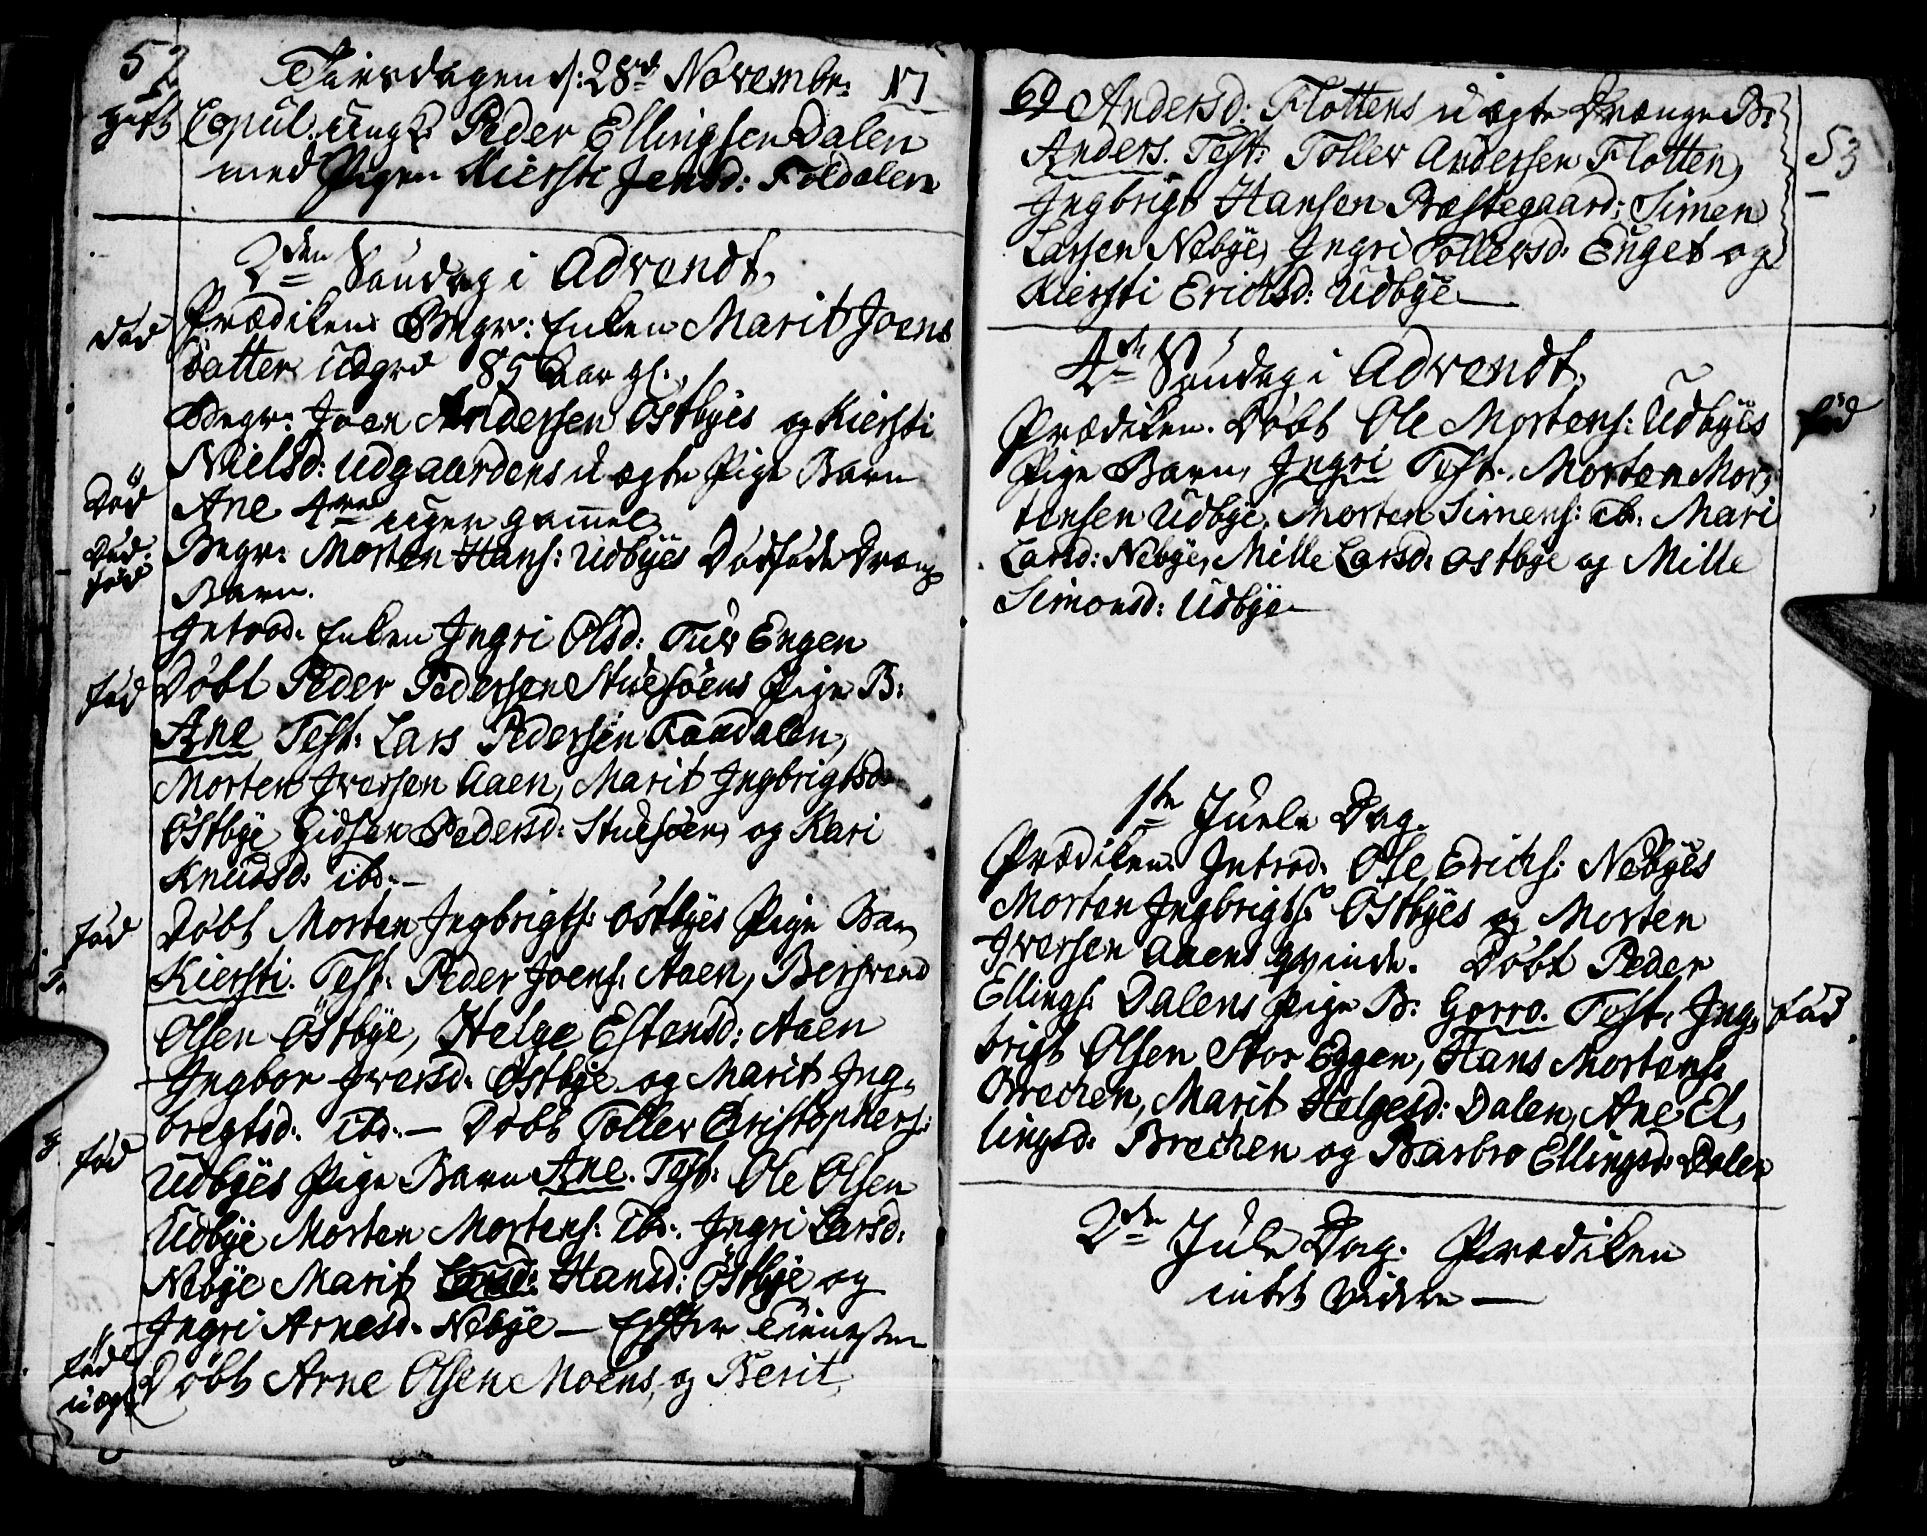 52
Tiirsdagen d: 28de Novembr: 17
gift Copul. Ungk: Peder Ellingsen Dalen
med Pigen Kiersti Jensd: Foldalen
2den Søndag i Advendt,
død Prædiken. Begr: Enken Marit Joens
datter Udgrd 85 Aar gl.
Begr: Joen Andersen Østbyes og Kiersti
Nielsd: Udgaardens u ægte Pige Barn
Død Ane 4re uger gammel
Død Begr: Morten Hans: Udbyes Dødfødt Drænge
fød Barn.
Introd. Enken Ingri Olsd: Tuv Engen
fød Døbt Peder Pedersen Stuesøens Pige B:
Ane Test: Lars Pedersen Taadalen,
Morten Iversen Aaen, Marit Ingbrigtsd:
Østbye Gidsken Pedersd: Stuesøen, og Kari
Knudsd: ibd.—
fød Døbt Morten Ingbrigts: Østbyes Pige Barn
Kiersti. Test: Peder Joens: Aaen, Bersvend
Olsen Østbye, Helge Estensd: Aaen
Ingbor Iversd: Østbye og Marit Ing-
bregtsd: ibd.— Døbt Toller Christophers:
fød Udbyes Pige Barn Ane. Test: Ole Olsen
Udbye Morten Mortens: ibd: Ingri Larsd:
Nebye Marit Hansd: Østbye og
Ingri Arnesd. Nebye — Efter Tienesten
fød uægt Døbt Arne Olsen Moens, og Berit
53
Andersd: Flottens u ægte Drænge B:
Anders. Test: Toller Andersen Flotten,
Ingbrigt Hansen Præstegaard: Simen
Larsen Nebye, Ingri Tollersd: Enget og
Kiersti Erichsd: Udbye —
4de Søndag i Advendt,
Prædiken. Døbt Ole Mortens: Udbyes fød
Pige Barn, Ingri Test: Morten Mor,
tensen Udbye, Morten Simens: ib: Mari
Larsd: Nebye, Mille Larsd: Østbye og Mille
Simonsd: Udbye—
1ste Juele Dag.
Prædiken. Introd. Ole Erichs: Nebyes
Morten Ingbrigts: Østbyes og Morten
Iversen Aaens qvinde. Døbt Peder
Ellings: Dalens Pige B: Gorro. Test: Ing, fød
brigt Olsen Stor Eggen, Hans Mortens:
Brechen, Marit Helgesd: Dalen, Ane El,
lingsd: Brechen og Barbro Ellingsd: Dalen
2den Jule Dag. Prædiken
intet videre —